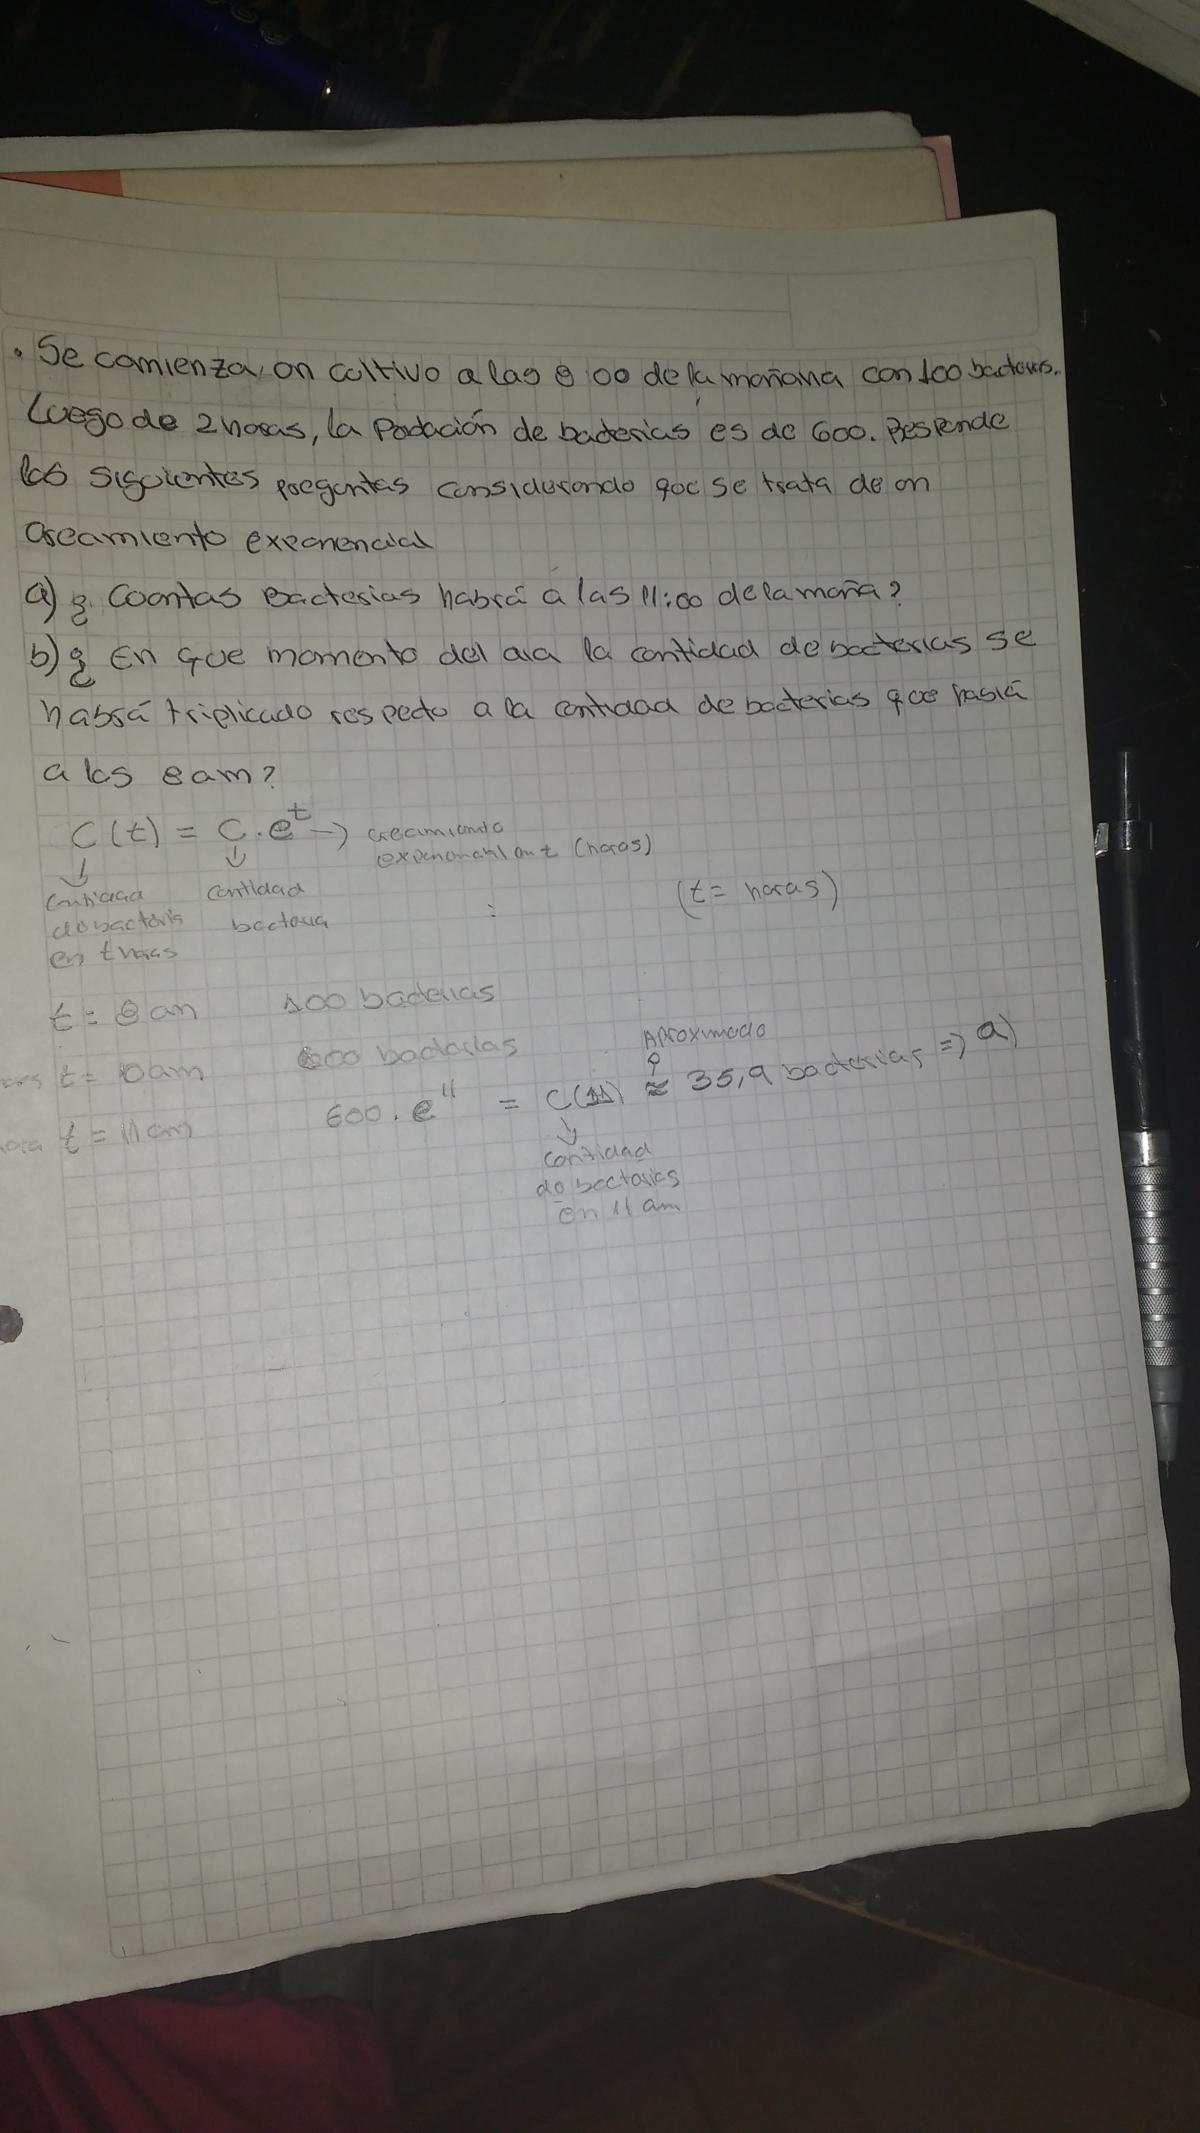 • Se comienza un cultivo a las 8:00 de la mañana con 100 bacterias.
Luego de 2 horas, la Población de bacterias es de 600. Responde
las siguientes preguntas considerando que se trata de un
creamiento exponencial
a) ¿ Cuantas Bacterias habrá a las 11:00 de la maña?
b) ¿ En que momento del dia la cantidad de bacterias se
habrá triplicado respecto a la cantidad de bacterias que había
a las 8am?
C(t) = C . e^t → crecimiento
exponencial en t (horas)
cantidad cantidad (t = horas)
de bacteria bacteria
en t horas
t = 8 am 100 bacterias
t = 10 am 600 bacterias Aproximado
t = 11 am 600 . e^11 = C(11) ≈ 35,9 bacterias => a)
cantidad
de bacterias
en 11 am